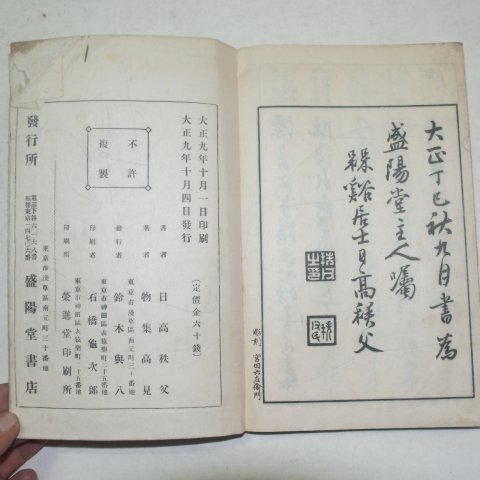 大正丁巳秋九月書爲
盛陽堂主人囑
槑谿居士日高秩父
彫刻 宮田六左衛門
大正九年十月一日印刷
大正九年十月四日發行
(定價金六十錢)
不許
複製
著者 日高秩父
著者 物集高見
東京市淺草區南元町三十番地
發行者 鈴木與八
東京市神田區表猿樂町二十五番地
印刷者 石橋龜次郎
東京市神田區表猿樂町二十五番地
印刷所 榮進堂印刷所
發行所
東京市淺草區南元町三十番地
盛陽堂書店